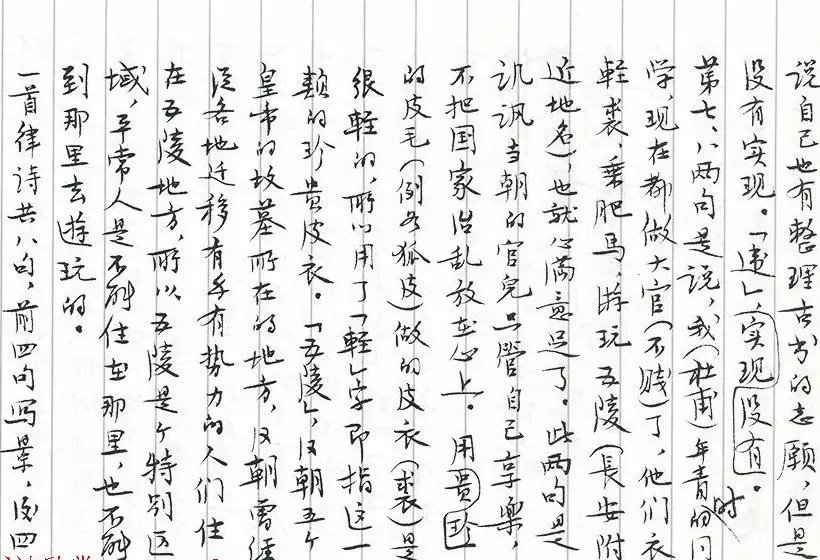 说自己也有整理古书的志愿，但是
没有实现。「违」，实现没有。
第七、八两句是说，我（杜甫）年青时的同
学，现在都做大官（不贱）了，他们衣
轻裘，乘肥马，游玩五陵（长安附
近地名），也就心满意足了。此两句是
讥讽当朝的官儿只管自己享乐，
不把国家治乱放在心上。用贵珍
的皮毛（例如狐皮）做的皮衣（裘）是
很轻的，所以用了「轻」字即指这一
类的珍贵皮衣。「五陵」，汉朝五个
皇帝的坟墓所在的地方，汉朝曾经
从各地迁移有钱有势力的人们住
在五陵地方，所以五陵是个特别区
域，平常人是不能住在那里，也不能
到那里去游玩的。
一首律诗共八句，前四句写景，后四